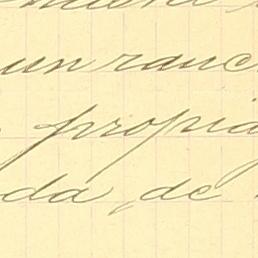 un ranc
propia
da, de